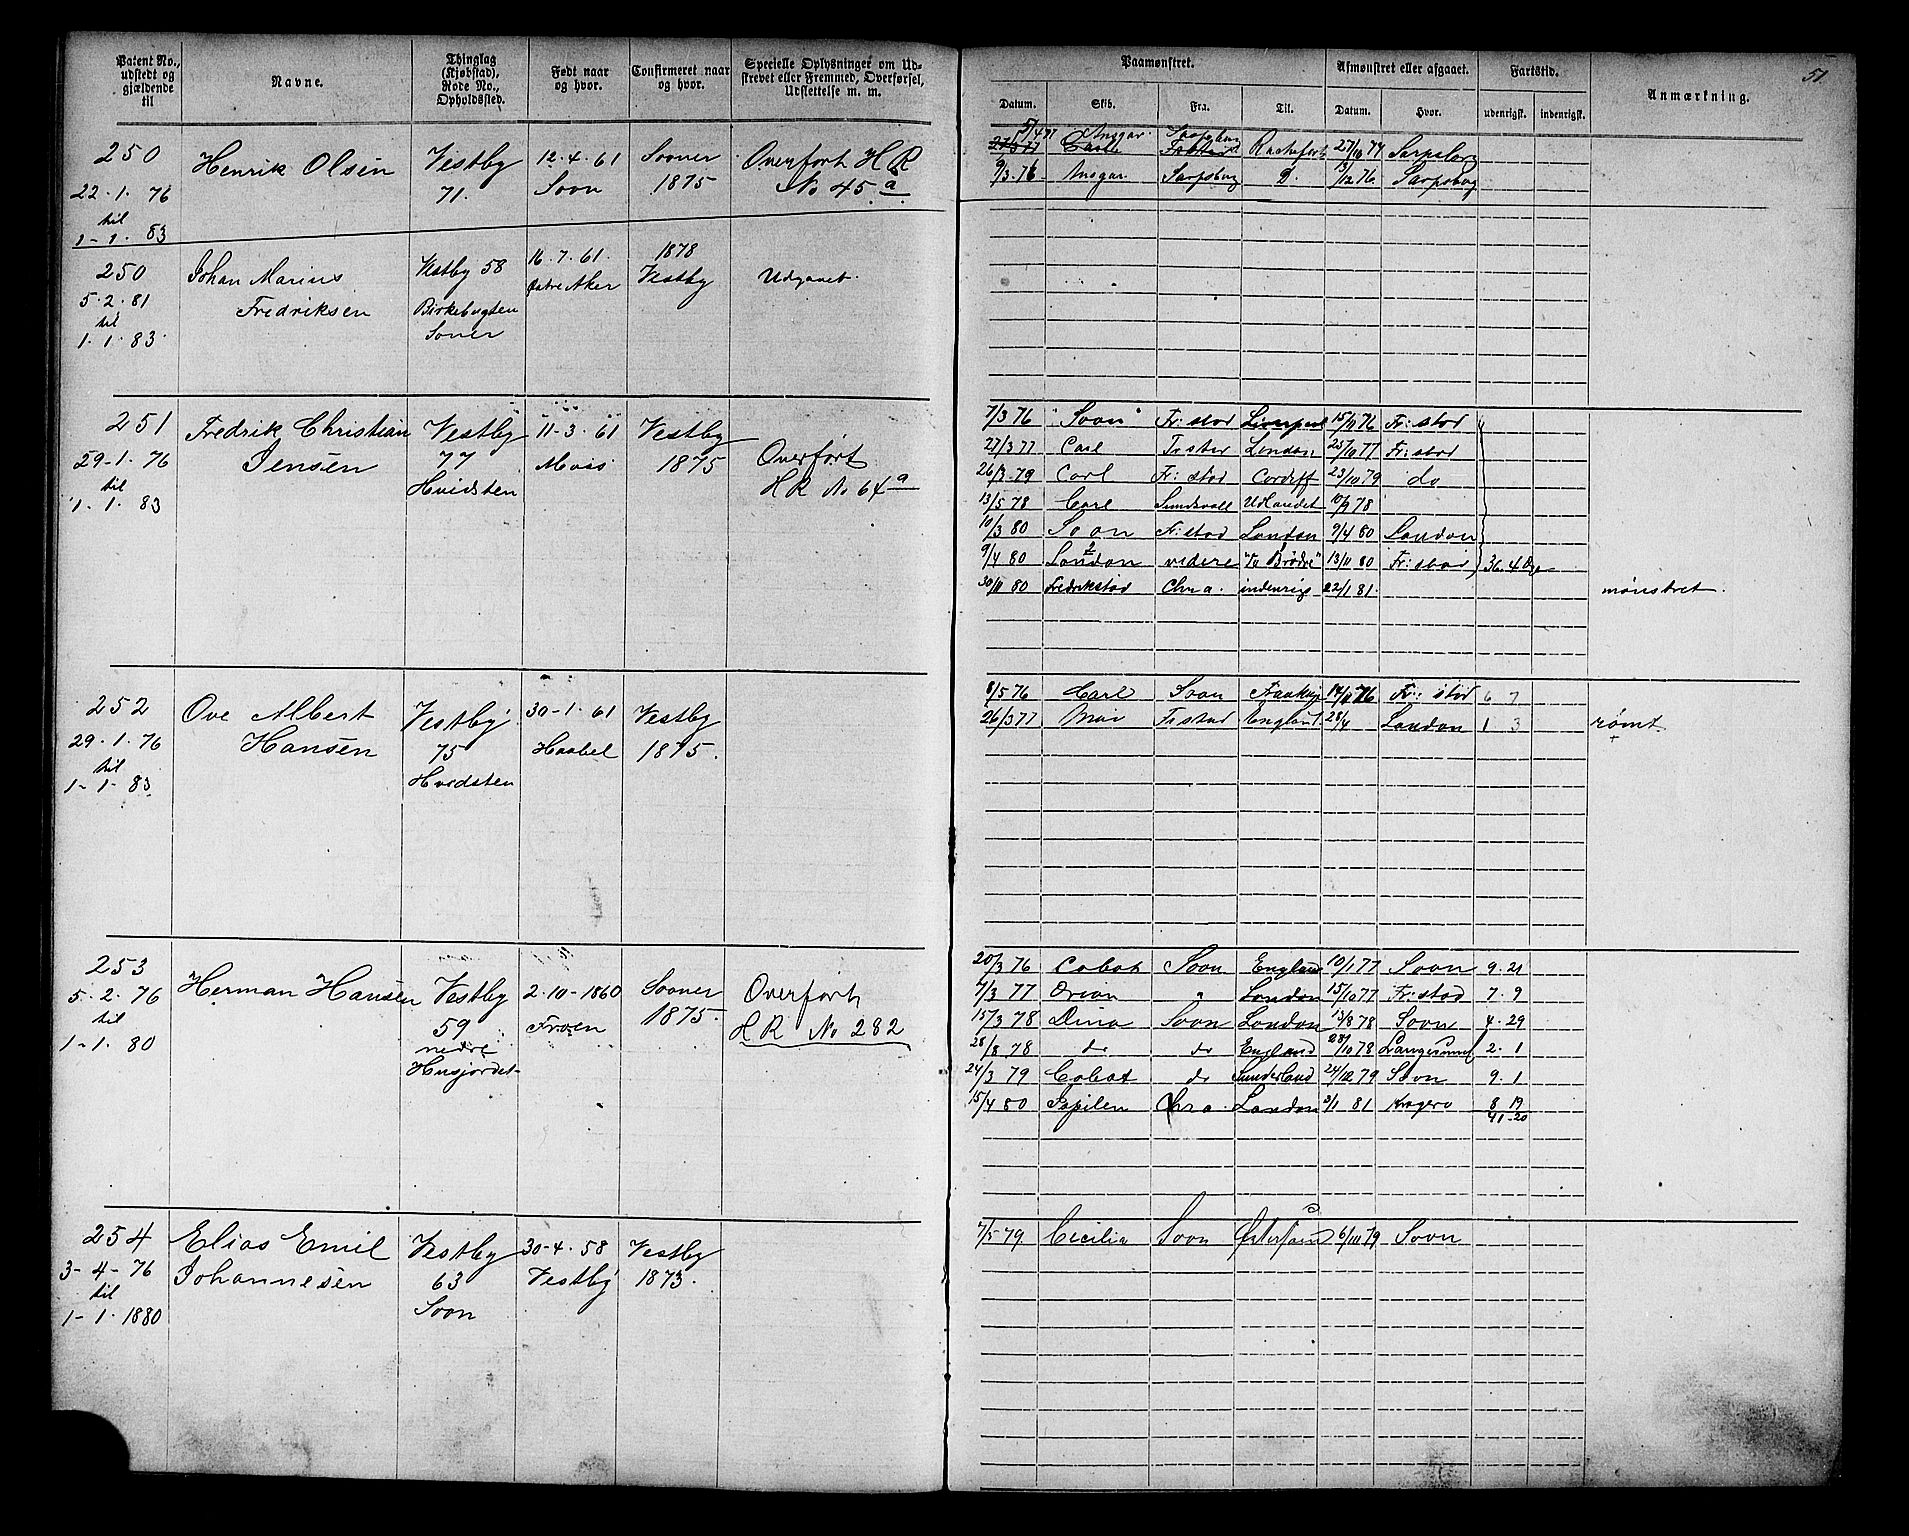 Patent No., udstedt og gjældende til
Navne.
Thinglag (Kjøbstad), Rode No., Opholdssted.
Født naar og hvor.
Confirmeret naar og hvor.
Specielle Oplysninger om Udskrevet eller Fremmed, Overførsel, Udslettelse m. m.
Paamønstret.
Afmønstret eller afgaaet.
Fartstid.
Anmærkning.
51.
Datum. Skib. Fra. Til. Datum. Hvor. udenrigsk. indenrigsk.
250
22-1. 76
til
1-1. 83
Henrik Olsen
Vestby
71.
12-4-61
Soon
Sooner
1875
Overført H R
No 45 a
5/4 77 Ansgar. Sarpsborg
27/3 77 Carl Frstad Rochefort 27/10 77 Sarpsborg
9/3 76 Ansgar. Sarpsborg D. /12 76 Sarpsborg
250
5. 2. 81
til
1. 1. 83.
Johan Marius
Fredriksen
Vestby 58
Birkebugten
Soner
16. 7. 61.
Østre Aker
1878
Vestby
Udgaaet.
251
29-1. 76
til
1-1. 83
Fredrik Christian
Jensen
Vestby
77
Hvidsten
11-3. 61
Moss
Vestby
1875
Overført
H R No 64 a
7/3 76 "Soon" Fr: stad Liverpool 15/11 76 Fr: stad
27/3 77 Carl Fr stad London 25/10 77 Fr: stad
26/3-79 Carl Fr: stad Cardiff 23/10 79 do
13/5 78 Carl Sundsvall Udlandet 10/9 78
10/3 80 Soon Fr: stad London 9/4 80 London
9/4 80 London videre "To Brødre" 13/11 80 Fr: stad 36. 4 Dge
30/11 80 Fredrikstad Chra. indenrigs 22/1 81. mønstret.
252
29. 1. 76
til
1-1- 83.
Ove Albert
Hansen
Vestby
75
Hvidsten
30-1. 61
Haabel
Vestby
1875.
8/5 76 Carl Soon 14/9 76 Fr: stad 6 7
26/3 77 Mai Fr stad England. 28/4 London 1 3 rømt
253
5. 2. 76
til
1-1. 80
Herman Hansen
Vestby
59
nedre
Husjordet
2. 10-1860
Froen
Sooner
1875.
Overført
H R No 282
20/3 76 Cobot Soon England 10/1 77 Soon 9. 21
7/3 77 Orion " London 15/10 77 Fr: stad 7. 9
15/3 78 Dina Soon London 13/8 78 Soon 4. 29
28/8 78 do do England 28/10 78 Langesund 2. 1
24/3 79 Cobot do Sunderland 24/12 79 Soon 9. 1
15/4 80 Papilen Chra. London 3/1 81 Kragerø 8 19
41-20
254
3-4-76
til
1-1. 1880
Elias Emil
Johannesen
Vestby
63
Soon
30-4. 58
Vestby
Vestby
1873.
7/5 79 Cecilia Soon Østersøen 6/10 79 Soon